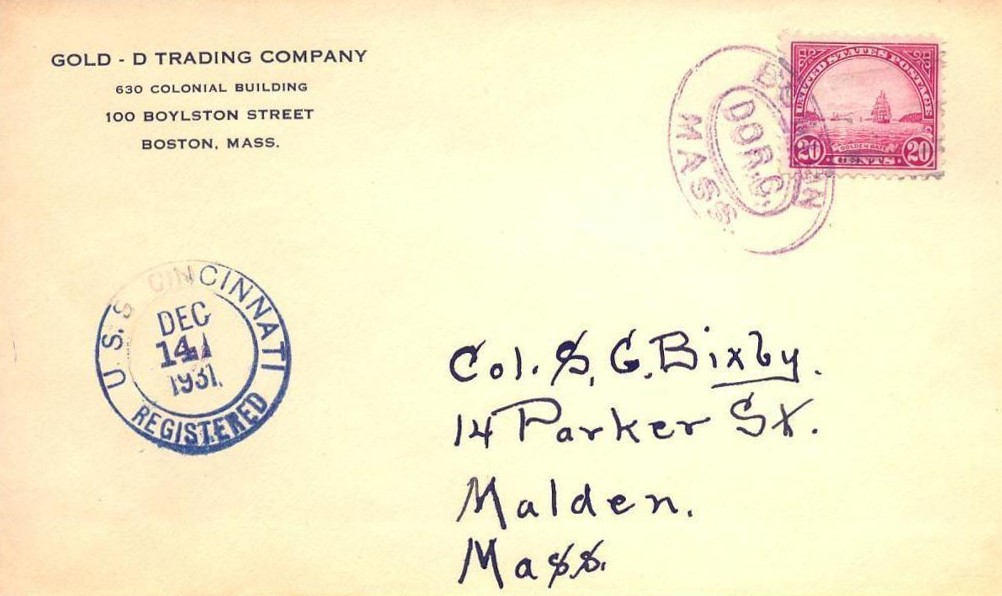 GOLD - D TRADING COMPANY
630 COLONIAL BUILDING
100 BOYLSTON STREET
BOSTON, MASS.
UNITED STATES POSTAGE
GOLDEN GATE
20 CENTS 20
DOR.C.
MASS.
U.S.S CINCINNATI
DEC
14
1931.
REGISTERED
Col. S. G. Bixby.
14 Parker St.
Malden.
Mass.